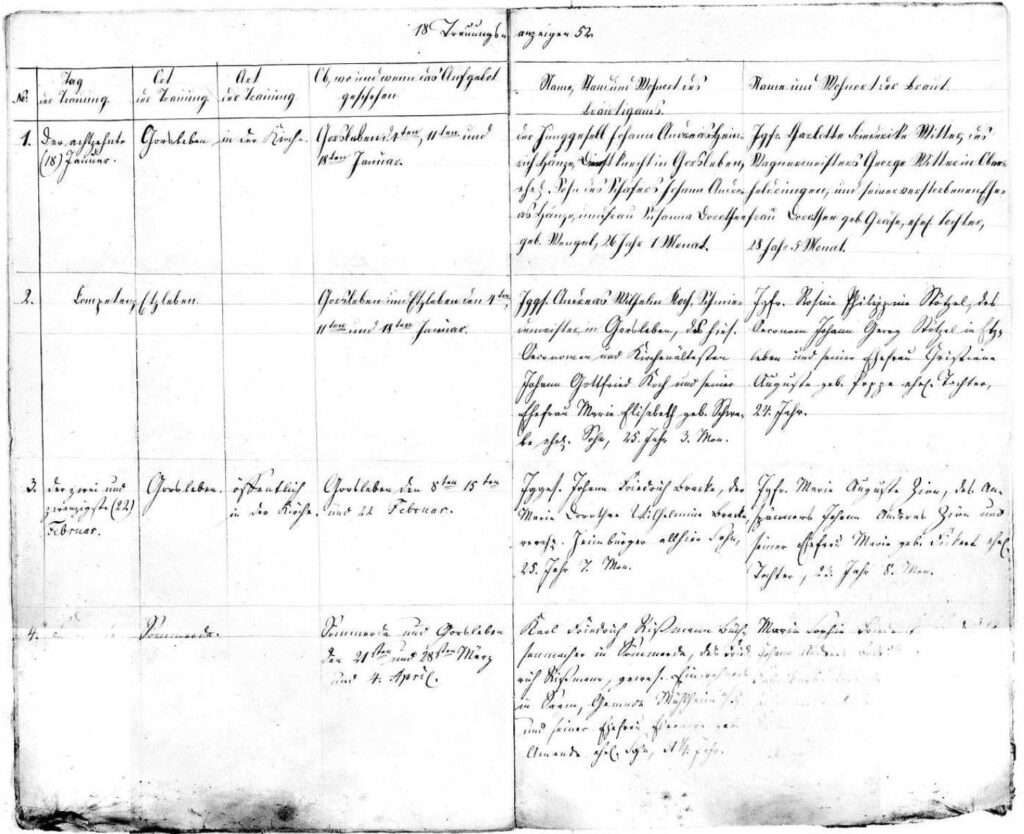 18 Trauungs-
anzeigen 52
No.
Tag
der Trauung.
Ort
der Trauung
Art
der Trauung
Ob, wo und wann das Aufgebot
geschehen
Name, Stand und Wohnort des
Bräutigams.
Name und Wohnort der Braut.
1.
Der achtzehnte
(18) Januar.
Gorsleben
in der Kirche.
Gorsleben d. 4ten, 11ten und
18ten Januar.
der Junggesell Johann Andreas Hein-
rich Hänze, Dienstknecht in Gorsleben,
ehel. Sohn des Schäfers Johann Andre-
as Hänze, und Frau Susanna Dorothee
geb. Wengel, 26 Jahr 1 Monat.
Jgfr. Charlotte Friederike Witter, des
Wagnermeisters George Witter in Ober-
heldrungen, und seiner verstorbenen Ehe-
frau Dorothee geb. Gräfe, ehel. Tochter,
28 Jahr 5 Monat.
2.
Etzleben.
Gorsleben und Etzleben den 4ten,
11ten und 18ten Januar.
Jggs. Andreas Wilhelm Koch, Schmie-
demeister, in Gorsleben, des hies.
Oeconomen und Kirchenältesten
Johann Gottfried Koch und seiner
Ehefrau Marie Elisabeth geb. Schwa-
be ehel. Sohn, 25 Jahr 3. Mon.
Jgfr. Rosine Philippine Stötzel, des
Oeconom Johann Georg Stötzel in Etz-
leben und seiner Ehefrau Christiane
Auguste geb. Poppe ehel. Tochter,
24 Jahr.
3.
der zwei und
zwanzigste (22)
Februar.
Gorsleben.
öffentlich
in der Kirche.
Gorsleben den 8ten 15ten
und 22 Februar.
Jgges. Johann Friedrich Bracke, der
Marie Dorothee Wilhelmine Bracke,
verehl. Heimbürger allhier Sohn,
25. Jahr 7. Mon.
Jgfr. Marie Auguste Zien, des An-
spänners Johann Andreas Zien und
seiner Ehefrau Marie geb. ehel.
Tochter, 23. Jahr 8. Mon.
4.
Sömmerda.
Sömmerda und Gorsleben
den 21sten und 28sten März
und 4. April.
Karl Friedrich Rißmann Büch-
senmacher in Sömmerda, des Fried-
rich Rißmann, gewes. Einwohners
in Saarn, Gemeinde Mühlheim
und seiner Ehefrau geb.
Amende ehel. Sohn, Jahr.
Marie Sophie
Johann Andreas